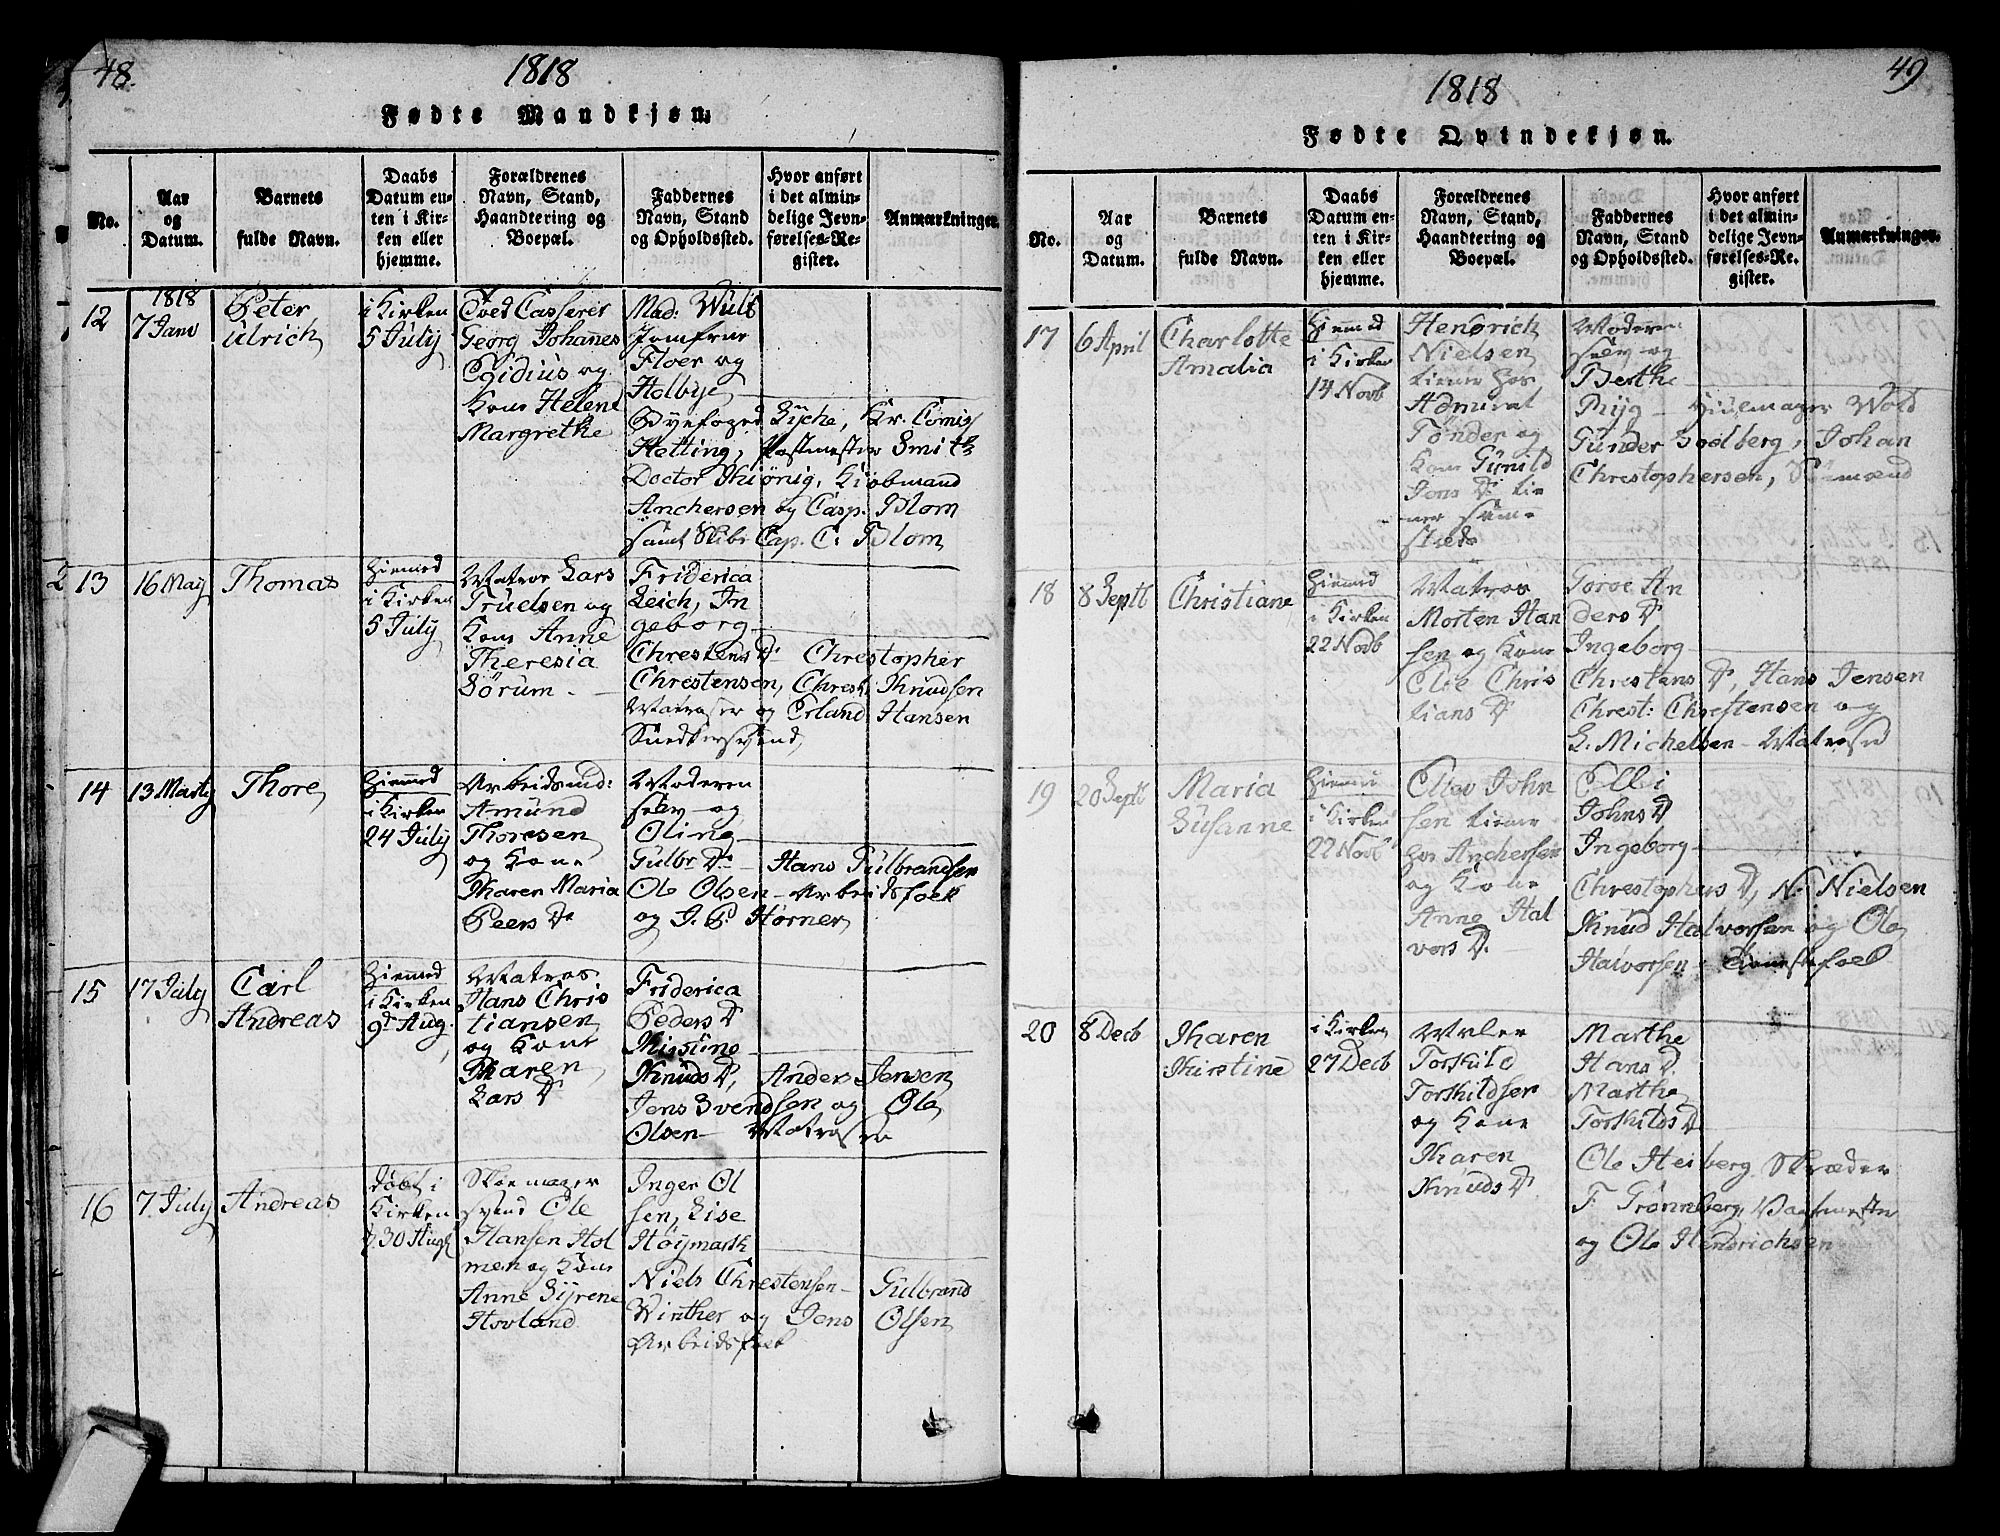 48.
1818
Fødte Mandkjøn.
No.
Aar
og
Datum.
Barnets
fulde Navn.
Daabs
Datum en-
ten i Kir-
ken eller
hjemme.
Forældrenes
Navn, Stand,
Haandtering og
Boepæl.
Faddernes
Navn, Stand
og Opholdssted.
Hvor anført
i det almin-
delige Jevn-
førelses-Re-
gister.
Anmærkninger.
12
1818
7 Janv
Peter
Ulrich
i Kirken
5 July
Georg Johannes
Egidius og
Kone Helene
Margrethe
Mad: Wulf
Jomfrue
Floer og
Holbye
Byefoged Lyche, Kr. Comis/
Hetting, Postmester Smith
Doctor Thiønig, Kiøbmand
Anchersen og Casp. Blom
samt Skibs Cap. C. Blom
13
16 May
Thomas
Hiemmed
i Kirken
5 July
Matros Lars
Truelsen og
Kone Anne
Theresia
Sørum.
Friderica
Leich, In
geborg
Chrestens D. Christopher
Chrestensen, Chrest: Knudsen
Matroser og Erland Hansen
Snedkersvend
14
13 Marty
Thore
Hiemmed
i Kirken
24 July
Arbeidsmd:
Amund
Thoresen
og Kone
Karen Maria
Peers D.
Moderen
selv og
Oline
Gulbr D. Hans Gulbrandsen
Ole Olsen - Arbeidsfolk
og J. P. Hørner
15
17 July
Carl
Andreas
Hiemmed
i Kirken
9d Aug.
Matros
Hans Chris
tiansen
og Kone
Karen
Lars D
Friderica
Peders D
Knuds D, Anders Jensen
Jens Svendsen og Ole
Olsen - Matroser
16
7 July
Andreas
Døbt i
Kirken
d 30 Aug
Skoemager
svend Ole
Hansen Hol
men og Kone
Anne Syrene
Hovland
Inger Ol
sen, Lise
Høymark
Niels Chrestensen - Gulbrand
Winther og Jens Olsen
Arbeidsfolk
49
1818
Fødte Qvindekjøn.
No.
Aar
og
Datum.
Barnets
fulde Navn.
Daabs
Datum en-
ten i Kir-
ken eller
hjemme.
Forældrenes
Navn, Stand,
Haandtering og
Boepæl.
Faddernes
Navn, Stand
og Opholdssted.
Hvor anført
i det almin-
delige Jevn-
førelses-Re-
gister.
Anmærkninger.
17
6 April
Charlotte
Amalia
Hiemmed
i Kirken
14 Novb
Hendrich
Nielsen
tiener hos
Admiral
Tønder og
Kone Gunild
Jons D. tie
ner sam-
steds
Moderen
selv og
Berthe
Ryg - Hiulmager Wold
Gunder Bodberg, Johan
Chrestophersen, Sømænd
18
8 Septb
Christiane
Hiemmed
i Kirken
22 Novb
Matros
Morten Han
sen og Kone
Eloe Chris
tians D
Torve An
ders D
Ingeborg
Chrestens D, Hans Jensen
Chrest: Chrestensen og
L. Michelsen - Matroser
19
20 Septb
Maria
Susanne
Hiemmed
i Kirken
22 Novb
Ellev John
sen tiener
hos Anchersen
og Kone
Anne Hal
vors D.
Elli
Johns D
Ingeborg
Chrestophers D, N. Nielsen
Knud Halvorsen og Ole
Halvorsen - Tienestefolk
20
8 Decb
Karen
Kirstine
i Kirken
27 Decb
Torskild
Torskildsen
og Kone
Karen
Knuds D.
Marthe
Hans D.
Marthe
Torskilds D
Ole Heiberg Skræder
F. Grønneberg, Vagtmester
og Ole Hendrichsen